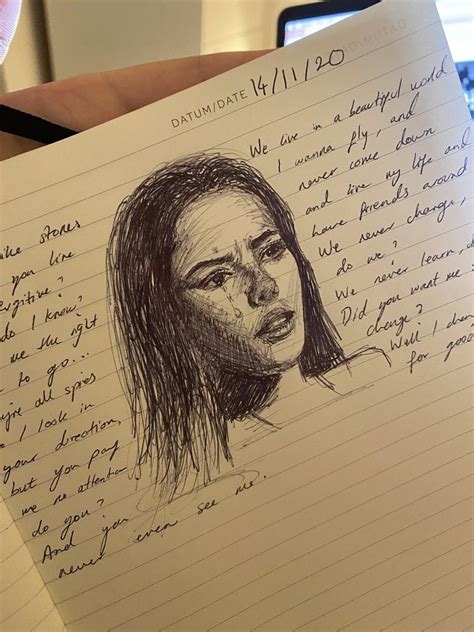 DATUM/DATE 14/11/20
We live in a beautiful world
I wanna fly, and
never come down
and live my life and
have friends around
We never change,
do we?
We never learn, d
Did you want me
change?
Well I
for good
ike stones
you live
do I know?
me the right
to go...
're all spies
I look in
your direction,
but you pay
me no attention
do you?
And you
never even see me.